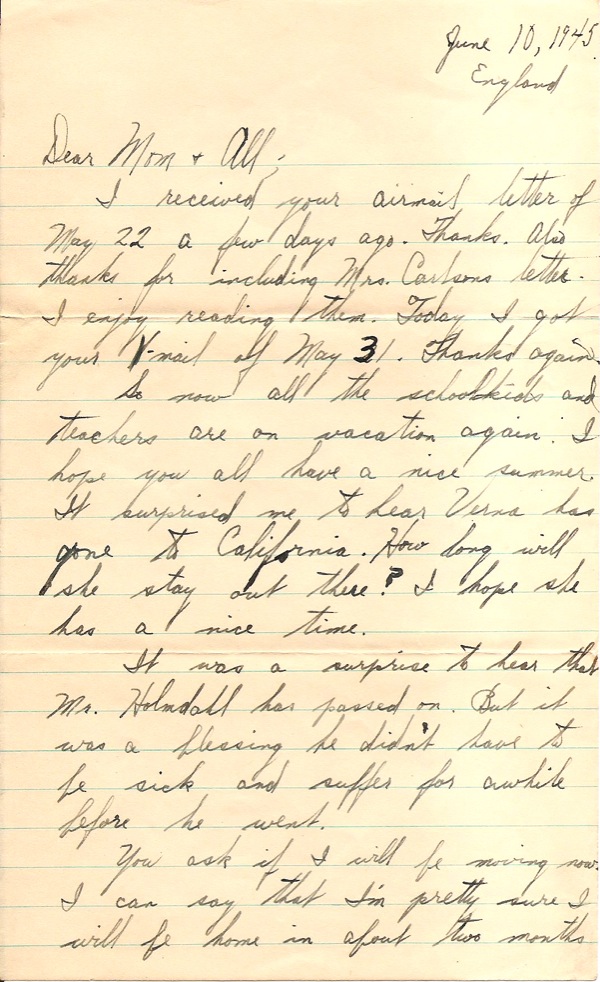 June 10, 1945
England
Dear Mom + All,
I received your airmail letter of
May 22 a few days ago. Thanks. Also
thanks for including Mrs. Carlsons letter.
I enjoy reading them. Today I got
your V-mail of May 31. Thanks again.
So now all the schoolkids and
teachers are on vacation again. I
hope you all have a nice summer.
It surprised me to hear Verna has
gone to California. How long will
she stay out there? I hope she
has a nice time.
It was a surprise to hear that
Mr. Holmdahl has passed on. But it
was a blessing he didn't have to
be sick and suffer for awhile
before he went.
You ask if I will be moving now.
I can say that I'm pretty sure I
will be home in about two months